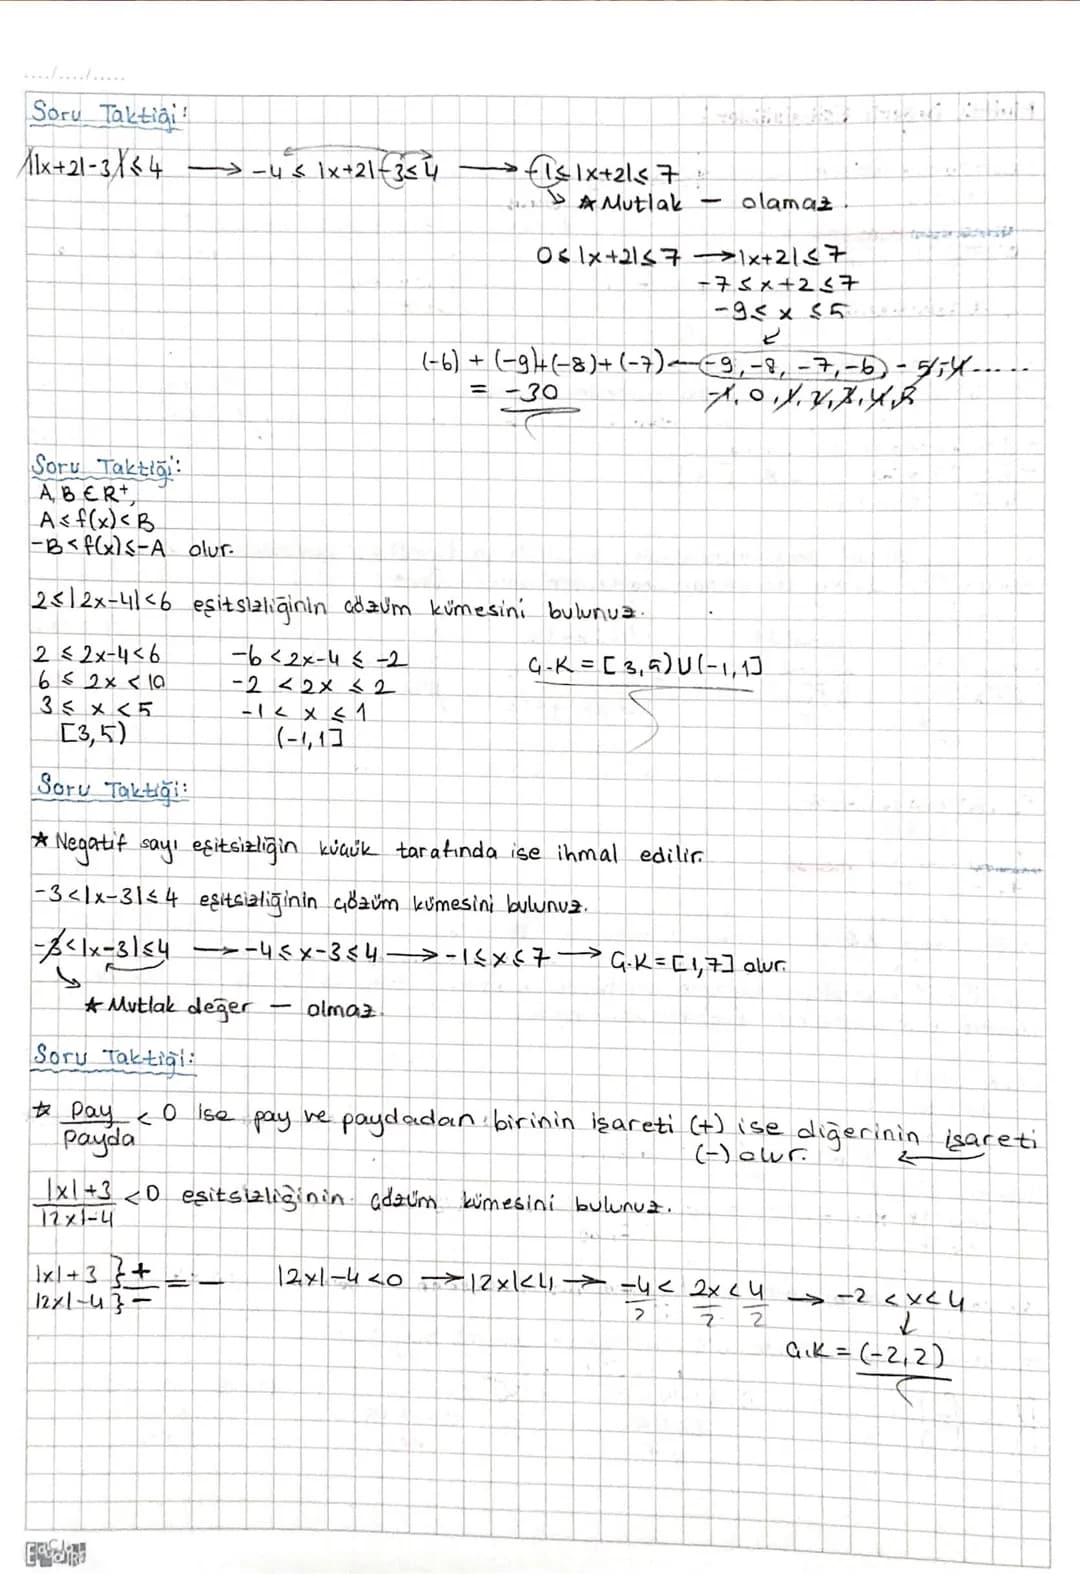 Soru Taktiği:
||x+2|-3|≤4 → -4 ≤ |x+2|-3≤4 → -1≤|x+2|≤7
★ Mutlak - olamaz.
0≤|x+2|≤7 → |x+2|≤7
-7≤x+2≤7
-9≤ x ≤5
(-6) + (-9)+(-8)+(-7) — -9, -8, -7, -6, -5, -4.....
= -30 -1, 0, 1, 2, 3, 4, 5
Soru Taktiği:
A, B ∈ R⁺,
A≤f(x)<B
-B<f(x)≤-A olur.
2≤|2x-4|<6 eşitsizliğinin çözüm kümesini bulunuz.
2 ≤ 2x-4<6 -6<2x-4 ≤ -2 Ç.K = [3,5)U(-1,1]
6 ≤ 2x < 10 -2 < 2x ≤ 2
3≤ x <5 -1< x ≤ 1
[3,5) (-1,1]
Soru Taktiği:
★ Negatif sayı eşitsizliğin küçük tarafında ise ihmal edilir.
-3<|x-3|≤4 eşitsizliğinin çözüm kümesini bulunuz.
-3<|x-3|≤4 → -4≤x-3≤4 → -1≤x≤7 → Ç.K=[1,7] olur.
★ Mutlak değer - olmaz.
Soru Taktiği:
★ Pay/Payda < 0 ise pay ve paydadan birinin işareti (+) ise diğerinin işareti
(-) olur.
|x|+3/|2x|-4 <0 eşitsizliğinin çözüm kümesini bulunuz.
|x|+3 } + = - |2x|-4<0 → |2x|<4 → -4/2 < 2x/2 < 4/2 → -2 <x<4
|2x|-4 } -
Ç.K = (-2,2)